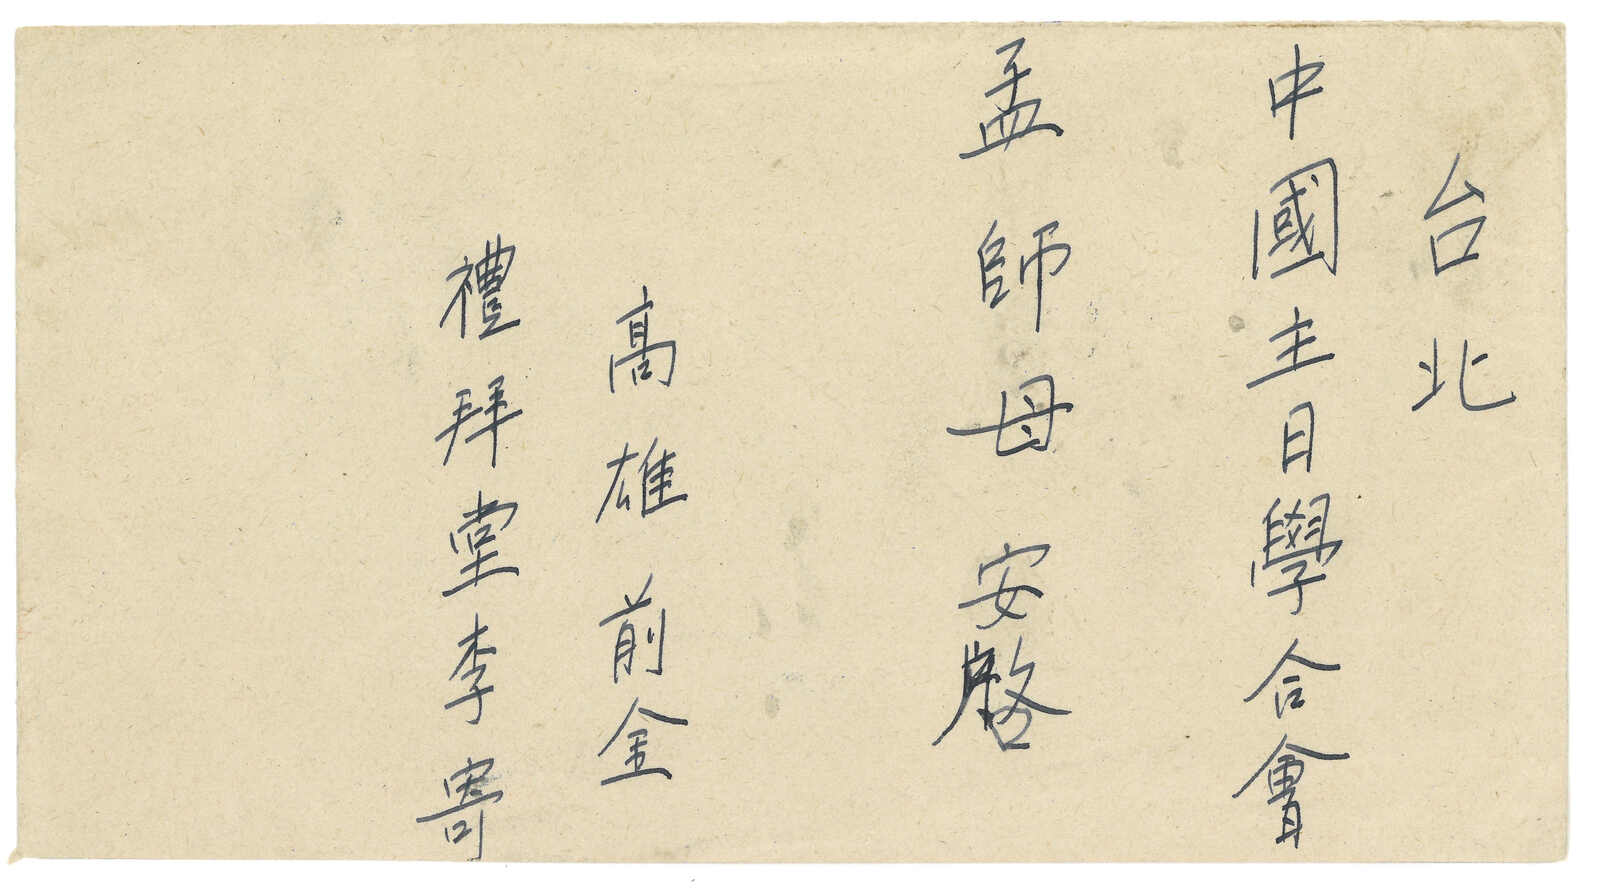 台北
中國主日學合會
孟師母 安啓
高雄前金
禮拜堂李寄